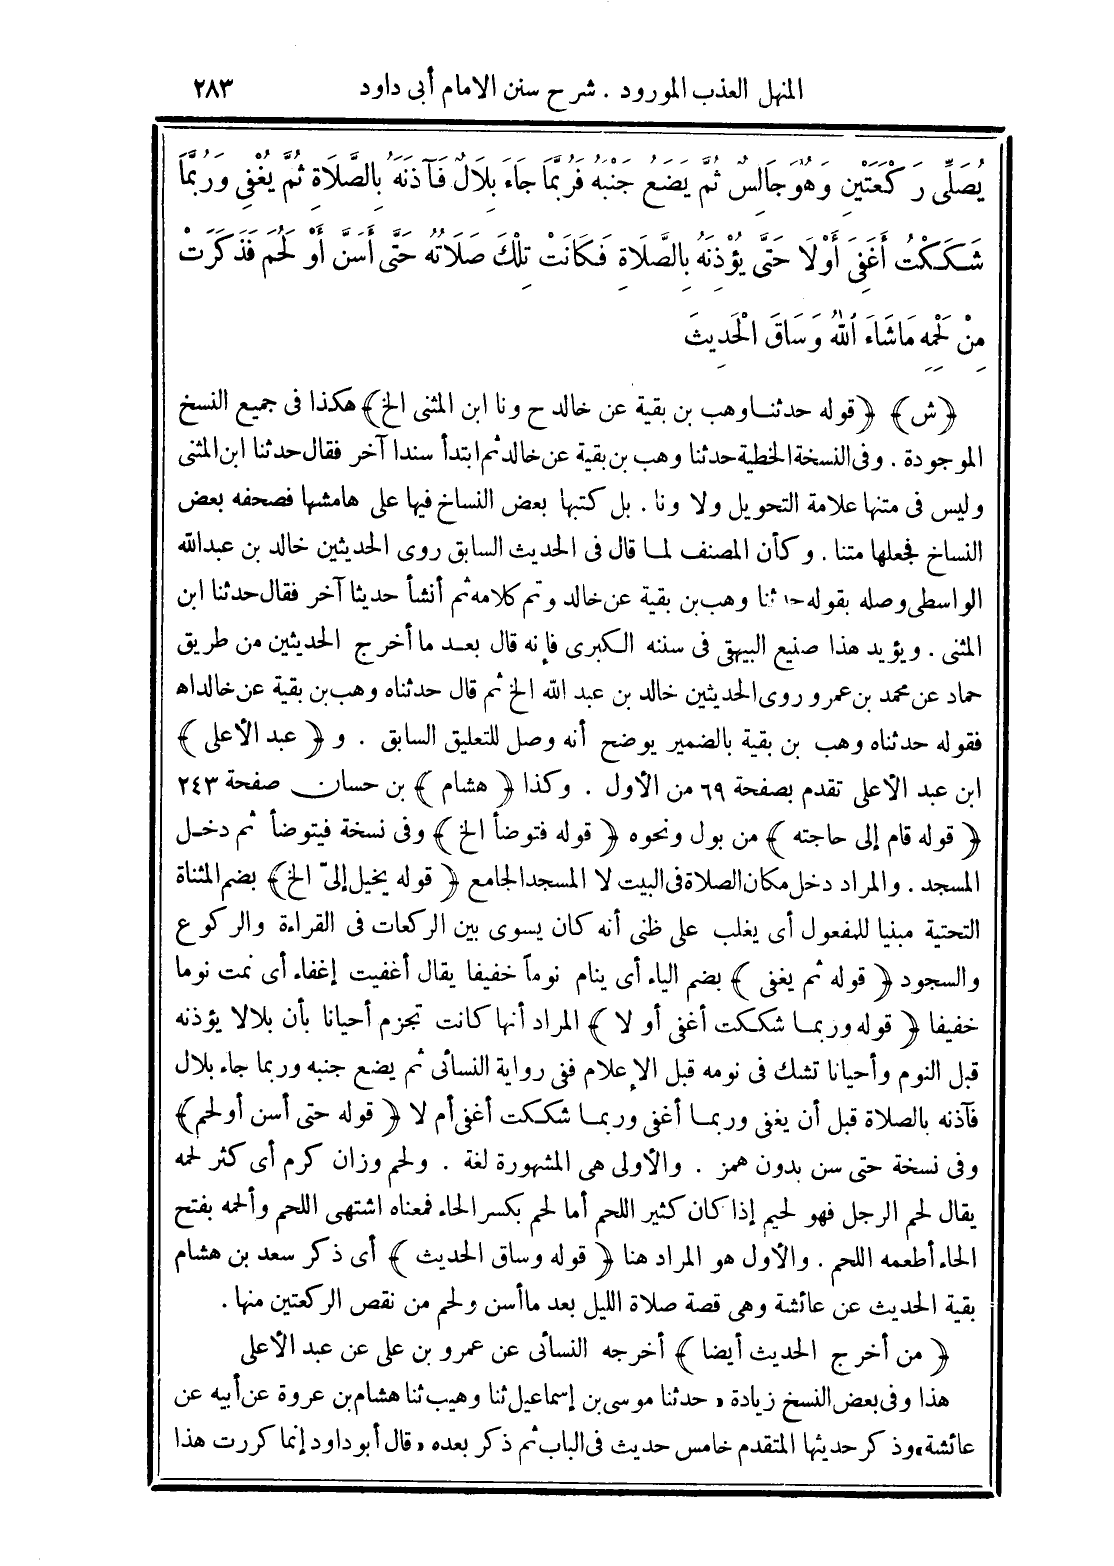 المنهل العذب المورود . شرح سنن الامام أبى داود ٢٨٣
يُصَلِّى رَكْعَتَيْنِ وَهُوَ جَالِسٌ ثُمَّ يَضَعُ جَنْبَهُ فَرُبَّمَا جَاءَ بِلَالٌ فَآذَنَهُ بِالصَّلَاةِ ثُمَّ يُغْفِى وَرُبَّمَا
شَكَكْتُ أَغَفَى أَوْ لَا حَتَّى يُؤْذِنَهُ بِالصَّلَاةِ فَكَانَتْ تِلْكَ صَلَاتُهُ حَتَّى أَسَنَّ أَوْ لَحُمَ فَذَكَرَتْ
مِنْ لَحْمِهِ مَاشَاءَ اللهُ وَسَاقَ الْحَدِيثَ
﴿ش﴾ ﴿قوله حدثنا وهب بن بقية عن خالد ح ونا ابن المثنى الخ﴾ هكذا فى جميع النسخ
الموجودة . وفى النسخة الخطية حدثنا وهب بن بقية عن خالد ثم ابتدأ سندا آخر فقال حدثنا ابن المثنى
وليس فى متنها علامة التحويل ولا ونا . بل كتبها بعض النساخ فيها على هامشها فصحفه بعض
النساخ فجعلها متنا . وكأن المصنف لما قال فى الحديث السابق روى الحديثين خالد بن عبد الله
الواسطى وصله بقوله حدثنا وهب بن بقية عن خالد وتم كلامه ثم أنشأ حديثا آخر فقال حدثنا ابن
المثنى . ويؤيد هذا صنيع البيهقى فى سننه الكبرى فإنه قال بعد ما أخرج الحديثين من طريق
حماد عن محمد بن عمرو روى الحديثين خالد بن عبد الله الخ ثم قال حدثناه وهب بن بقية عن خالد اه
فقوله حدثناه وهب بن بقية بالضمير يوضح أنه وصل للتعليق السابق . و ﴿عبد الأعلى﴾
ابن عبد الأعلى تقدم بصفحة ٦٩ من الأول . وكذا ﴿هشام﴾ بن حسان صفحة ٢٤٣
﴿قوله قام إلى حاجته﴾ من بول ونحوه ﴿قوله فتوضأ الخ﴾ وفى نسخة فيتوضأ ثم دخل
المسجد . والمراد دخل مكان الصلاة فى البيت لا المسجد الجامع ﴿قوله يخيل إلىّ الخ﴾ بضم المثناة
التحتية مبنيا للمفعول أى يغلب على ظنى أنه كان يسوى بين الركعات فى القراءة والركوع
والسجود ﴿قوله ثم يغفى﴾ بضم الياء أى ينام نوماً خفيفا يقال أغفيت إغفاء أى نمت نوما
خفيفا ﴿قوله وربما شككت أغفى أو لا﴾ المراد أنها كانت تجزم أحيانا بأن بلالا يؤذنه
قبل النوم وأحيانا تشك فى نومه قبل الإعلام ففى رواية النسائى ثم يضع جنبه وربما جاء بلال
فآذنه بالصلاة قبل أن يغفى وربما أغفى وربما شككت أغفى أم لا ﴿قوله حتى أسن أو لحم﴾
وفى نسخة حتى سن بدون همز . والأولى هى المشهورة لغة . ولحم وزان كرم أى كثر لحمه
يقال لحم الرجل فهو لحيم إذا كان كثير اللحم أما لحم بكسر الحاء فمعناه اشتهى اللحم وألحمه بفتح
الحاء أطعمه اللحم . والأول هو المراد هنا ﴿قوله وساق الحديث﴾ أى ذكر سعد بن هشام
بقية الحديث عن عائشة وهى قصة صلاة الليل بعد ما أسن ولحم من نقص الركعتين منها .
﴿من أخرج الحديث أيضا﴾ أخرجه النسائى عن عمرو بن على عن عبد الأعلى
هذا وفى بعض النسخ زيادة «حدثنا موسى بن إسماعيل ثنا وهيب ثنا هشام بن عروة عن أبيه عن
عائشة» وذكر حديثها المتقدم خامس حديث فى الباب ثم ذكر بعده «قال أبو داود إنما كررت هذا